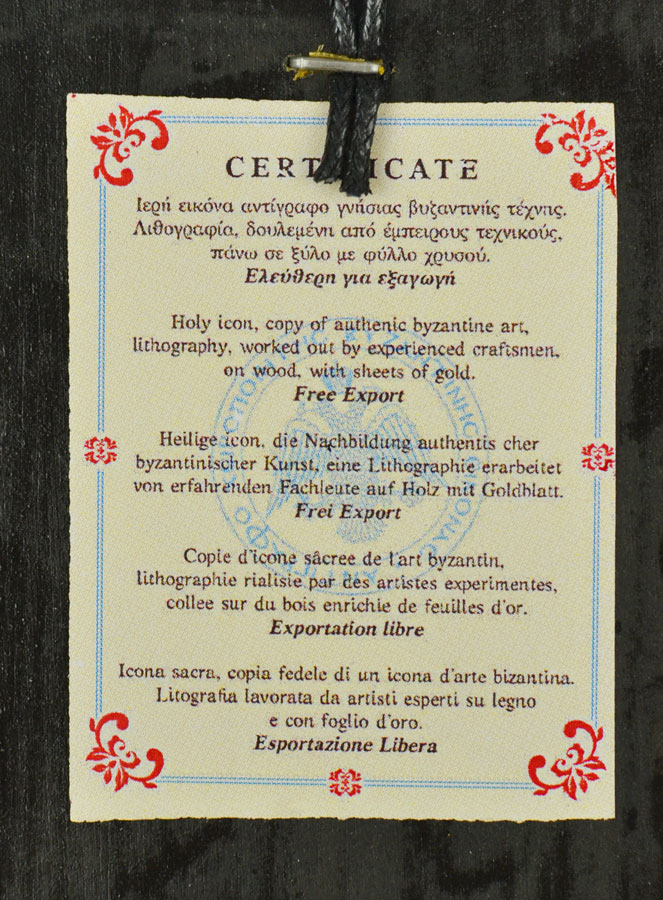 CERTIFICATE
Ιερή εικόνα αντίγραφο γνήσιας βυζαντινής τέχνης.
Λιθογραφία, δουλεμένη από έμπειρους τεχνικούς,
πάνω σε ξύλο με φύλλο χρυσού.
Ελεύθερη για εξαγωγή
Holy icon, copy of authenic byzantine art,
lithography, worked out by experienced craftsmen,
on wood, with sheets of gold.
Free Export
Heilige icon, die Nachbildung authentis cher
byzantinischer Kunst, eine Lithographie erarbeitet
von erfahrenden Fachleute auf Holz mit Goldblatt.
Frei Export
Copie d'icone sâcree de l'art byzantin,
lithographie rialisie par des artistes experimentes,
collee sur du bois enrichie de feuilles d'or.
Exportation libre
Icona sacra, copia fedele di un icona d'arte bizantina.
Litografia lavorata da artisti esperti su legno
e con foglio d'oro.
Esportazione Libera